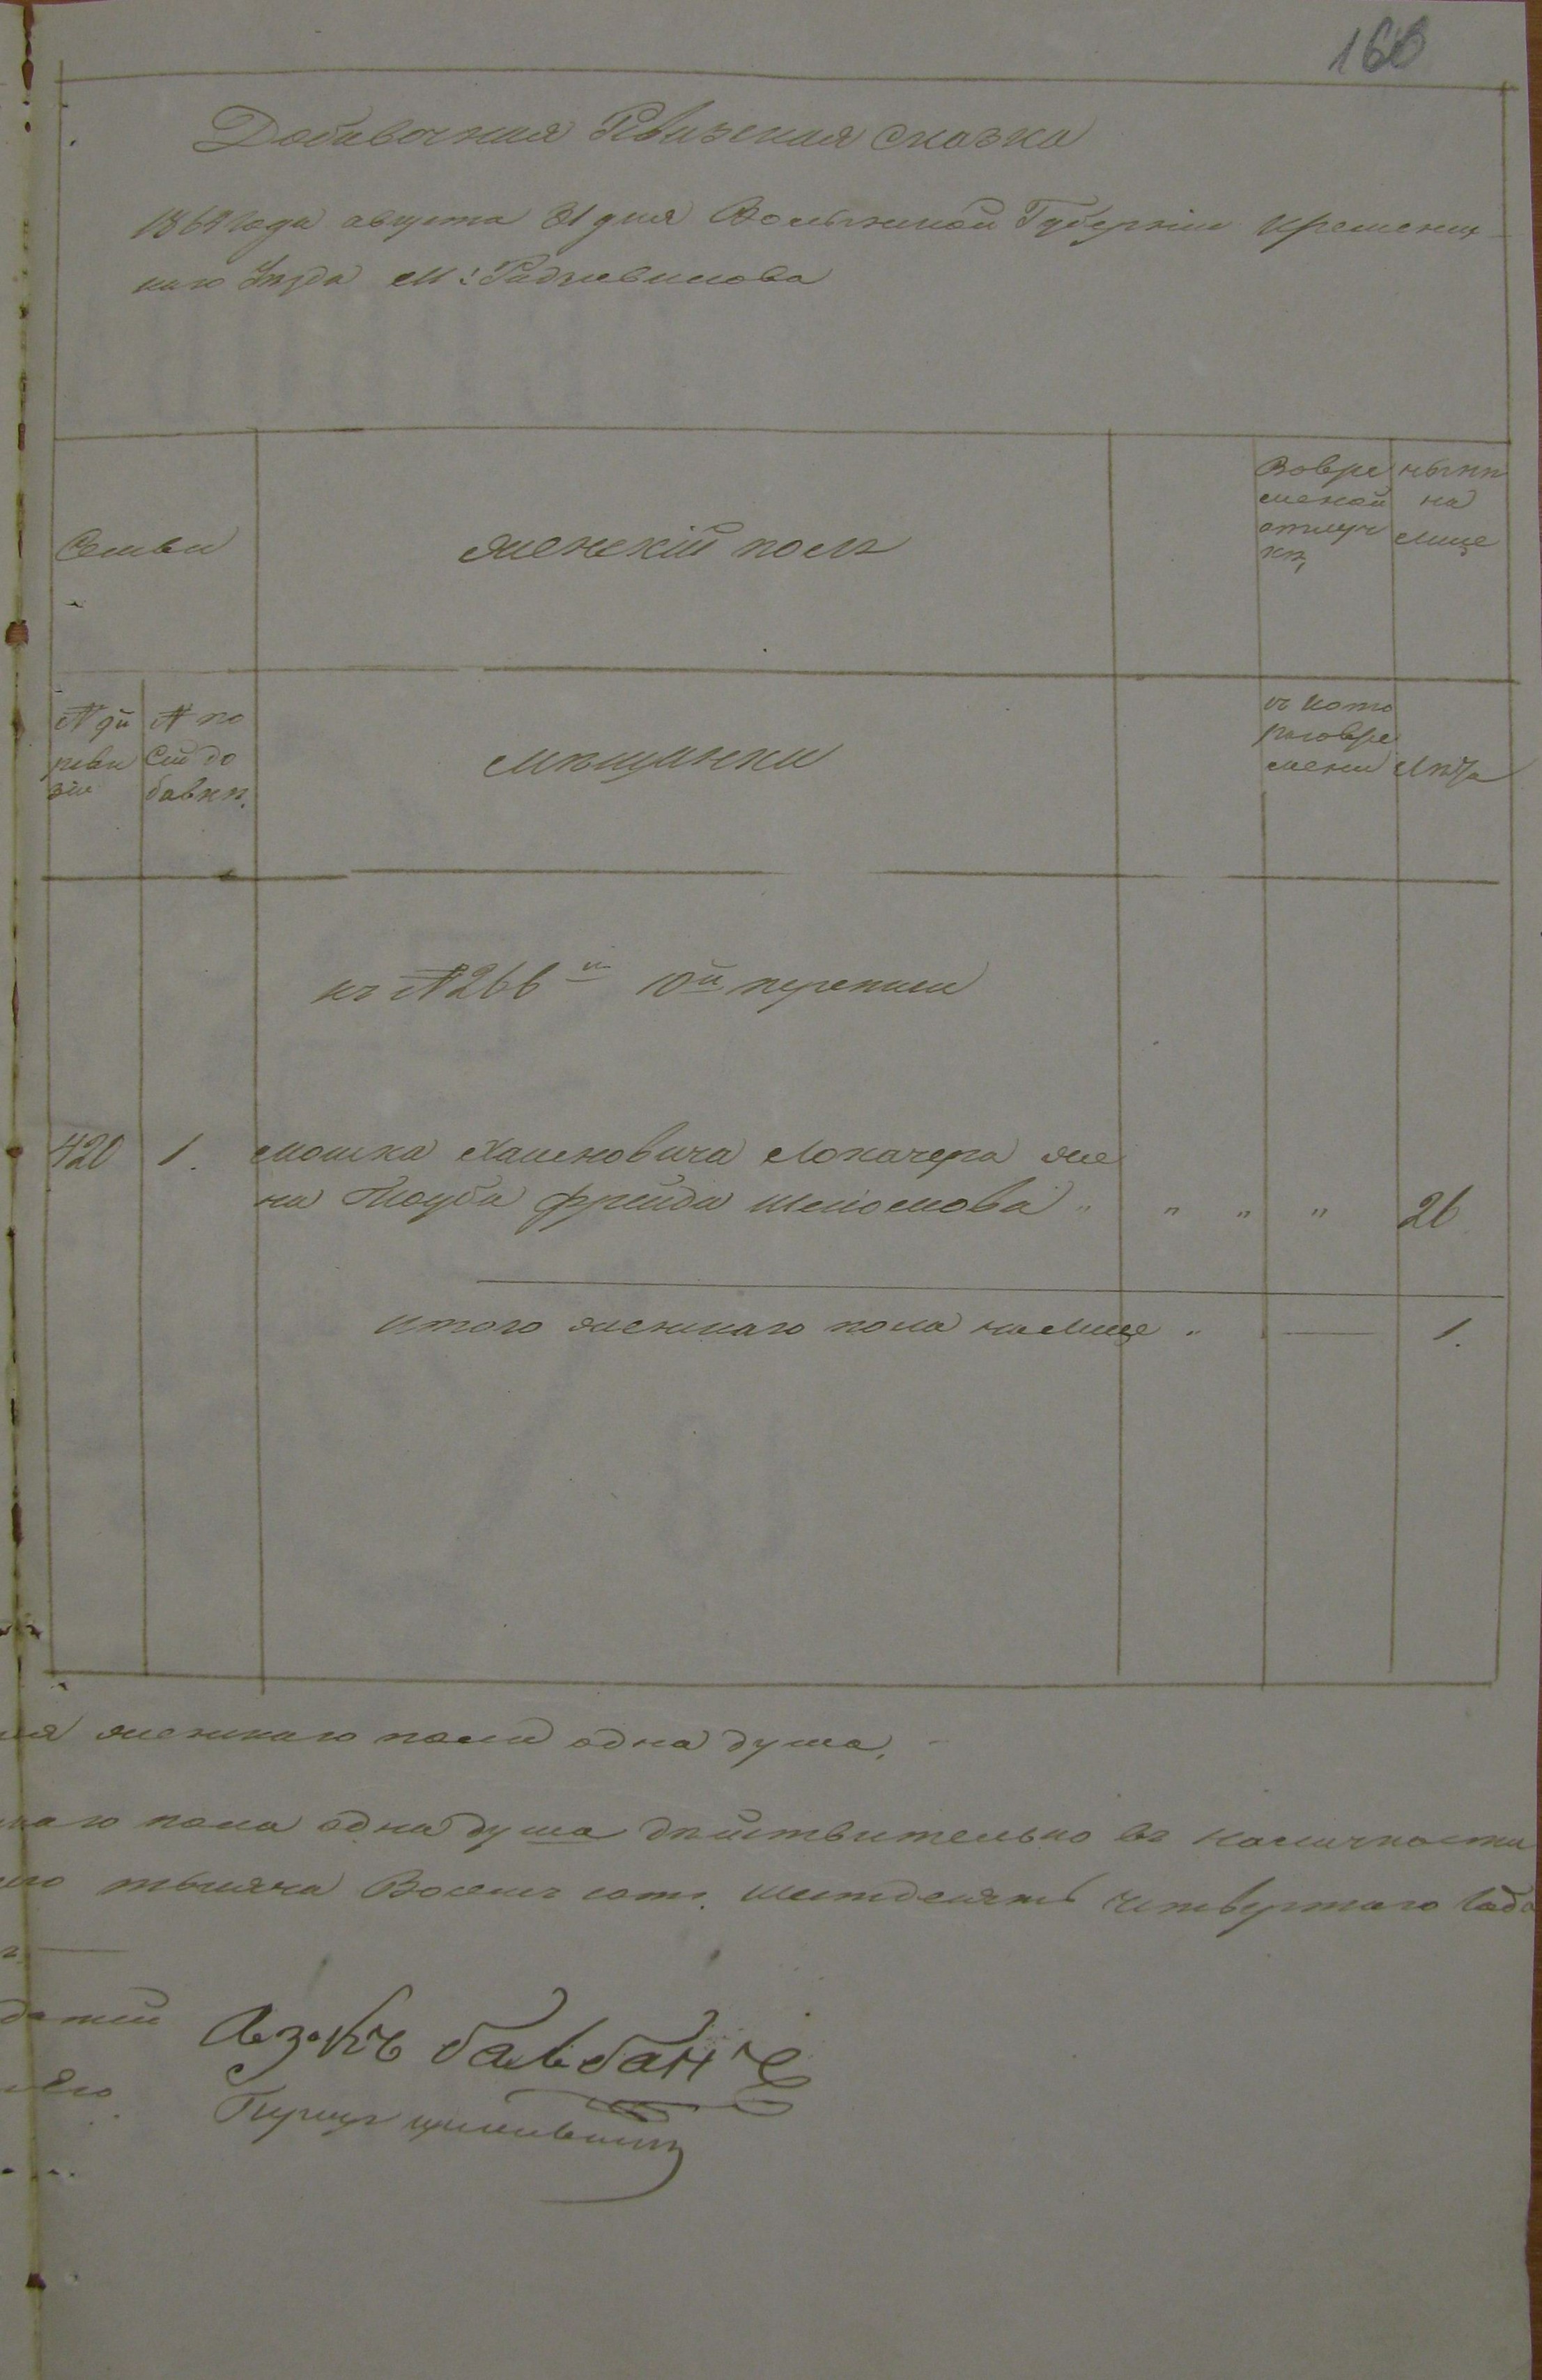 166
Добавочная Ревизская Сказка
1864 Года августа 31 дня Волынской Губерніи Кременец
каго Уезда М: Радзивилова
Семьи
женскій полъ
Вовре
менной
отлуч
кѣ,
нынѣ
на
лице
№ 10й
реви
зіи
№ по
Сей до
бавкѣ.
мѣщанки
съ кото
раго вре
мени
Лѣта
къ № 266й 10й переписи
420 1. Мошка Хаимовича Локачера же
на Тауба Фрейда Шеломова " " " " 26
итого женскаго пола на лице " — 1.
женскаго пола одна душа.
каго пола одна душа дѣйствительно въ наличности
тысяча Восемь сотъ шестдесятъ Четвертаго Года
Герш